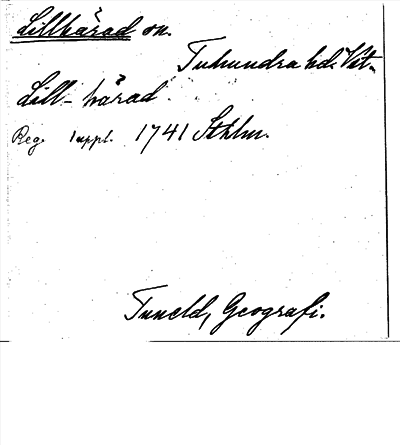 Lillhärad sn.
Tuhundra hd. Vst.
Lill-härad
Reg. 1 uppl. 1741 Sthlm.
Tuneld, Geografi.